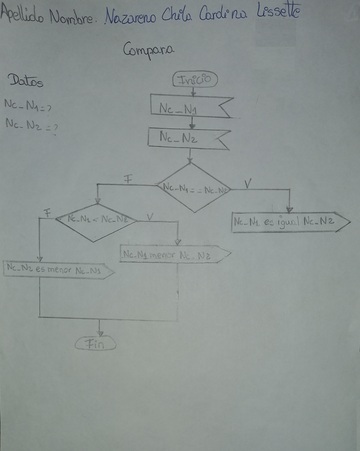 Apellido Nombre: Nazareno Chila Cardina Lissette
Compara
Datos
Nc_N1=?
Nc_N2=?
Inicio
Nc_N1
Nc_N2
F
Nc_N1==Nc_N2
V
F
Nc_N1<Nc_N2
V
Nc_N1 es igual Nc_N2
Nc_N1 menor Nc_N2
Nc_N2 es menor Nc_N1
Fin